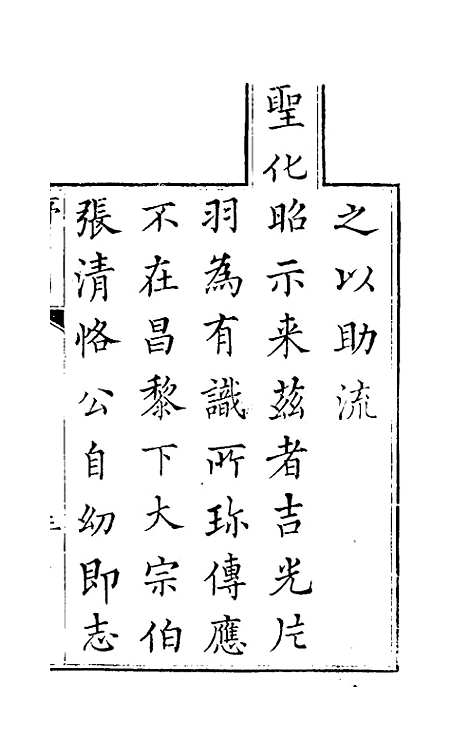 之以助流
聖化昭示来茲者吉光片
羽為有識所珎傳應
不在昌黎下大宗伯
張清恪公自幼即志